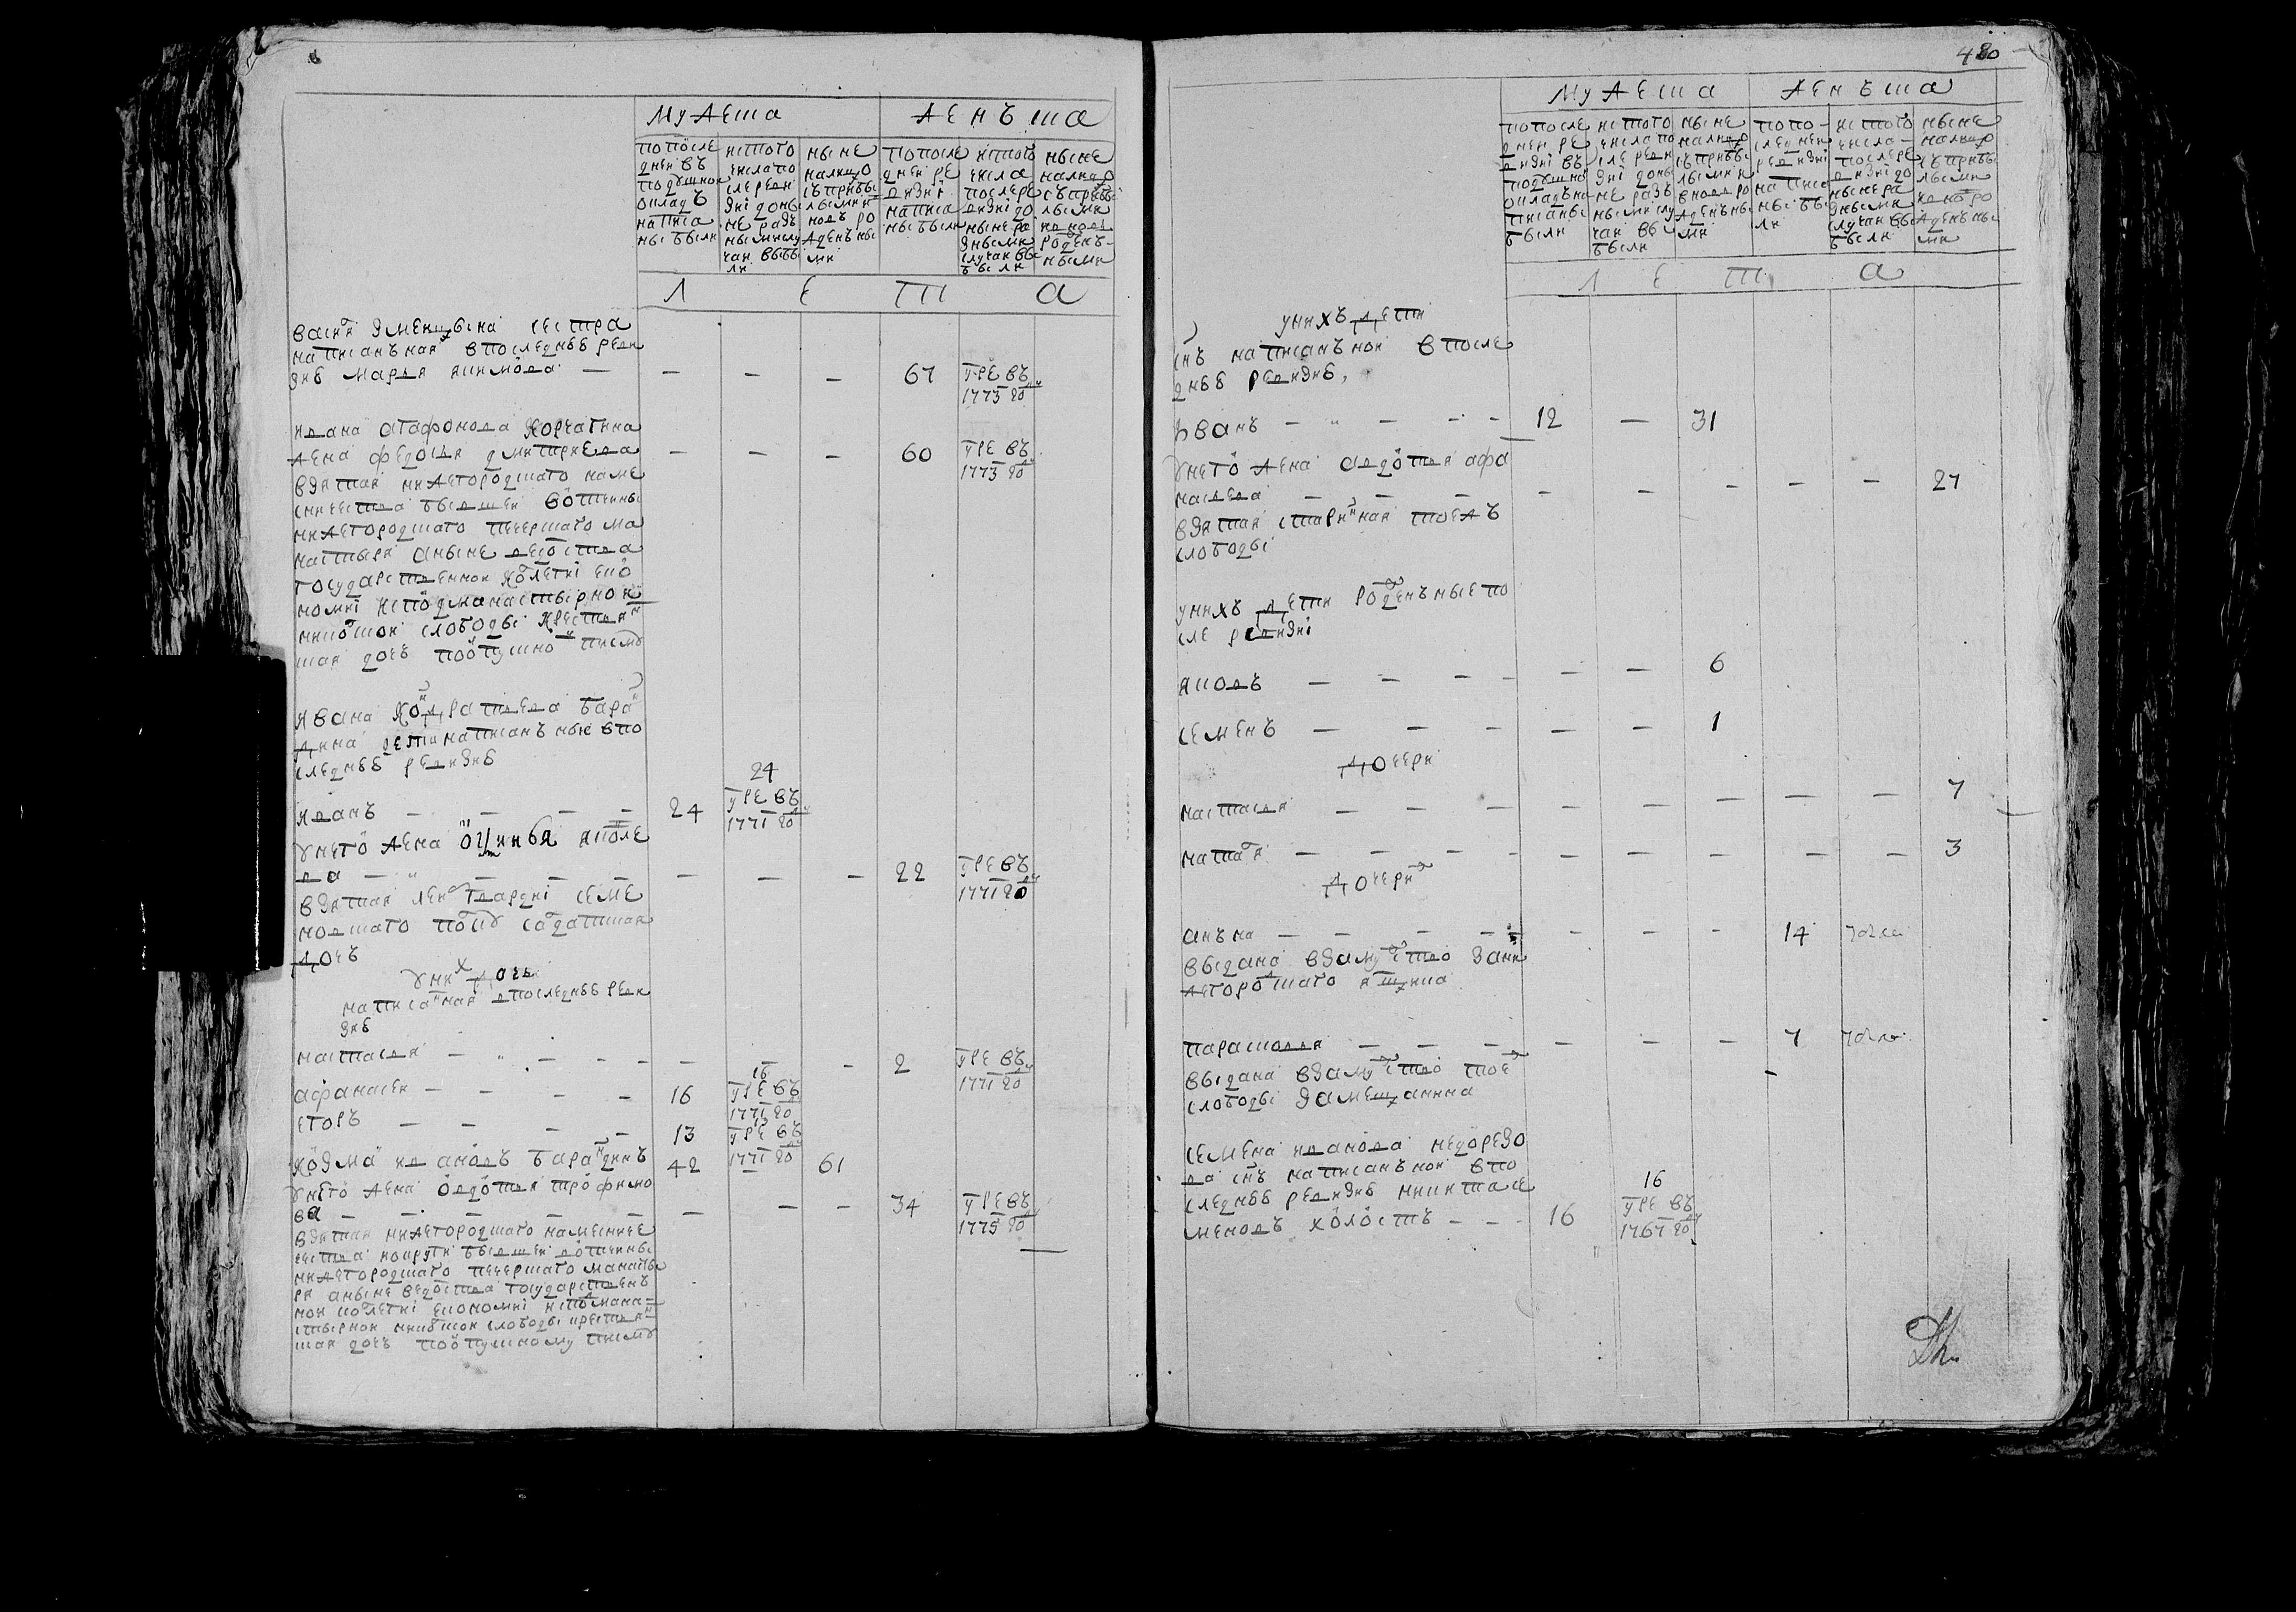 мужеска
женъска
попосле
дней въ
подушной
окладъ
написа
ны были
ис того
числа по
сле реви
зиі доны
не разъ
ными слу
чаи выбы
ли
ныне
налицо
съ прибы
лыми и
вновь ро
жденъны
ми
попосле
дней ре
визиі
написа
ны были
ис того
числа
после ре
визиі до
ныне ра
зными
случаи вы
были
ныне
налицо
съ прибы
лыми
и вновь
рожденъ
ными
л е т а
васил земенцына сестра
написанъная впоследней реви
зиі марья якимова — — — — 67 умре въ
1773 году
ивана агафонова корчагина
жена федосья дмитриева — — — 60 умре въ
1773 году
взятая нижегородскаго наме
сничества бывшей вотчины
нижегородскаго печерскаго мо
настыря а ныне ведомства
государственной колегиі эко
номиі исподмонастырной
никольской слободы крестьян
ская дочь по отпускному писму
ивана кондратьева баран
жина дети написанъныя впо
следней ревизиі
иванъ — — — — 24
24
умре въ
1771 году
у него жена яковле
ва — — — — — — — 22 умре въ
1771 году
взятая лейб гвардиі семе
новскаго полку салдатская
дочь
у них дочь
написанная впоследней реви
зиі
настасья — — — — — — — 2 умре въ
1771 году
афанасей — — — — 16
16
умре въ
1771 году
егоръ — — — — 13
13
умре въ
1771 году
козма ивановъ барандинъ 42 — 61
у него жена овдотья трофимо
ва — — — — — — — 34 умре въ
1775 году
взятая нижегородскаго намесниче
ества округи бывшей вотчины
нижегородскаго печерскаго манасты
ря а ныне ведомства государственъ
ной колегиі экономиі исподмона
стырной никольской слободы крестьян
ская дочь по отпускному писму
480
мужеска
женъска
попосле
дней ре
визиі въ
подушно
окладъ на
писаны
были
ис того
числа по
сле реви
зиі доны
не разъ
ными слу
чаи вы
были
ныне
налицо
съ прибы
лыми и
вновь ро
жденъны
ми
попо-
следней
ревизиі
написа
ны бы
ли
ис того
числа
после ре
визиі до
ныне ра
зными
случаи вы
были
ныне
налицо
съ прибы
лыми
и вновь ро
жденъны
ми
л е т а
у нихъ дети
снъ написанъной впосле
дней ревизиі
иванъ — — — — 12 — 31
у него жена авдотья афа
насьева — — — — — — — — 27
взятая старинная тоежъ
слободы
у нихъ дети рожденъные по
сле ревизиі
яковъ — — — — — — 6
семенъ — — — — — 1
дочери
настасья — — — — — — — — 7
наталья — — — — — — — — 3
дочери ж
анъна — — — — — — — 14
выдана взамужство за ни
жегородскаго ямщика
парасковья — — — — — — 7
выдана взамужство тоеж
слободы за мещанина
семена иванова недорезо
ва снъ написанъной впо
следней ревизиі никита се
меновъ холостъ — — 16
16
умре въ
1767 году